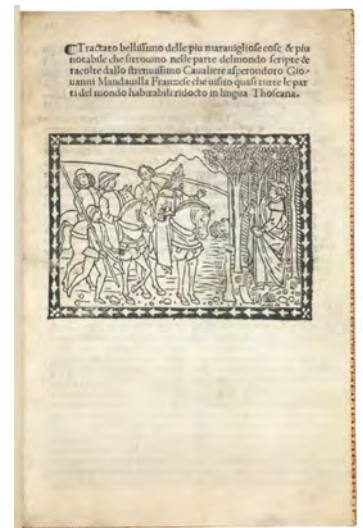 ¶Tractato bellissimo delle piu marauigliose cose & piu
notabile che si trouino nelle parte del mondo scripte &
racolte dallo strenuissimo Caualiere asperondoro Gio-
uanni Mandauilla Franzese che uisito quasi tutte le par
ti del mondo habitabili ridocto in lingua Thoscana.